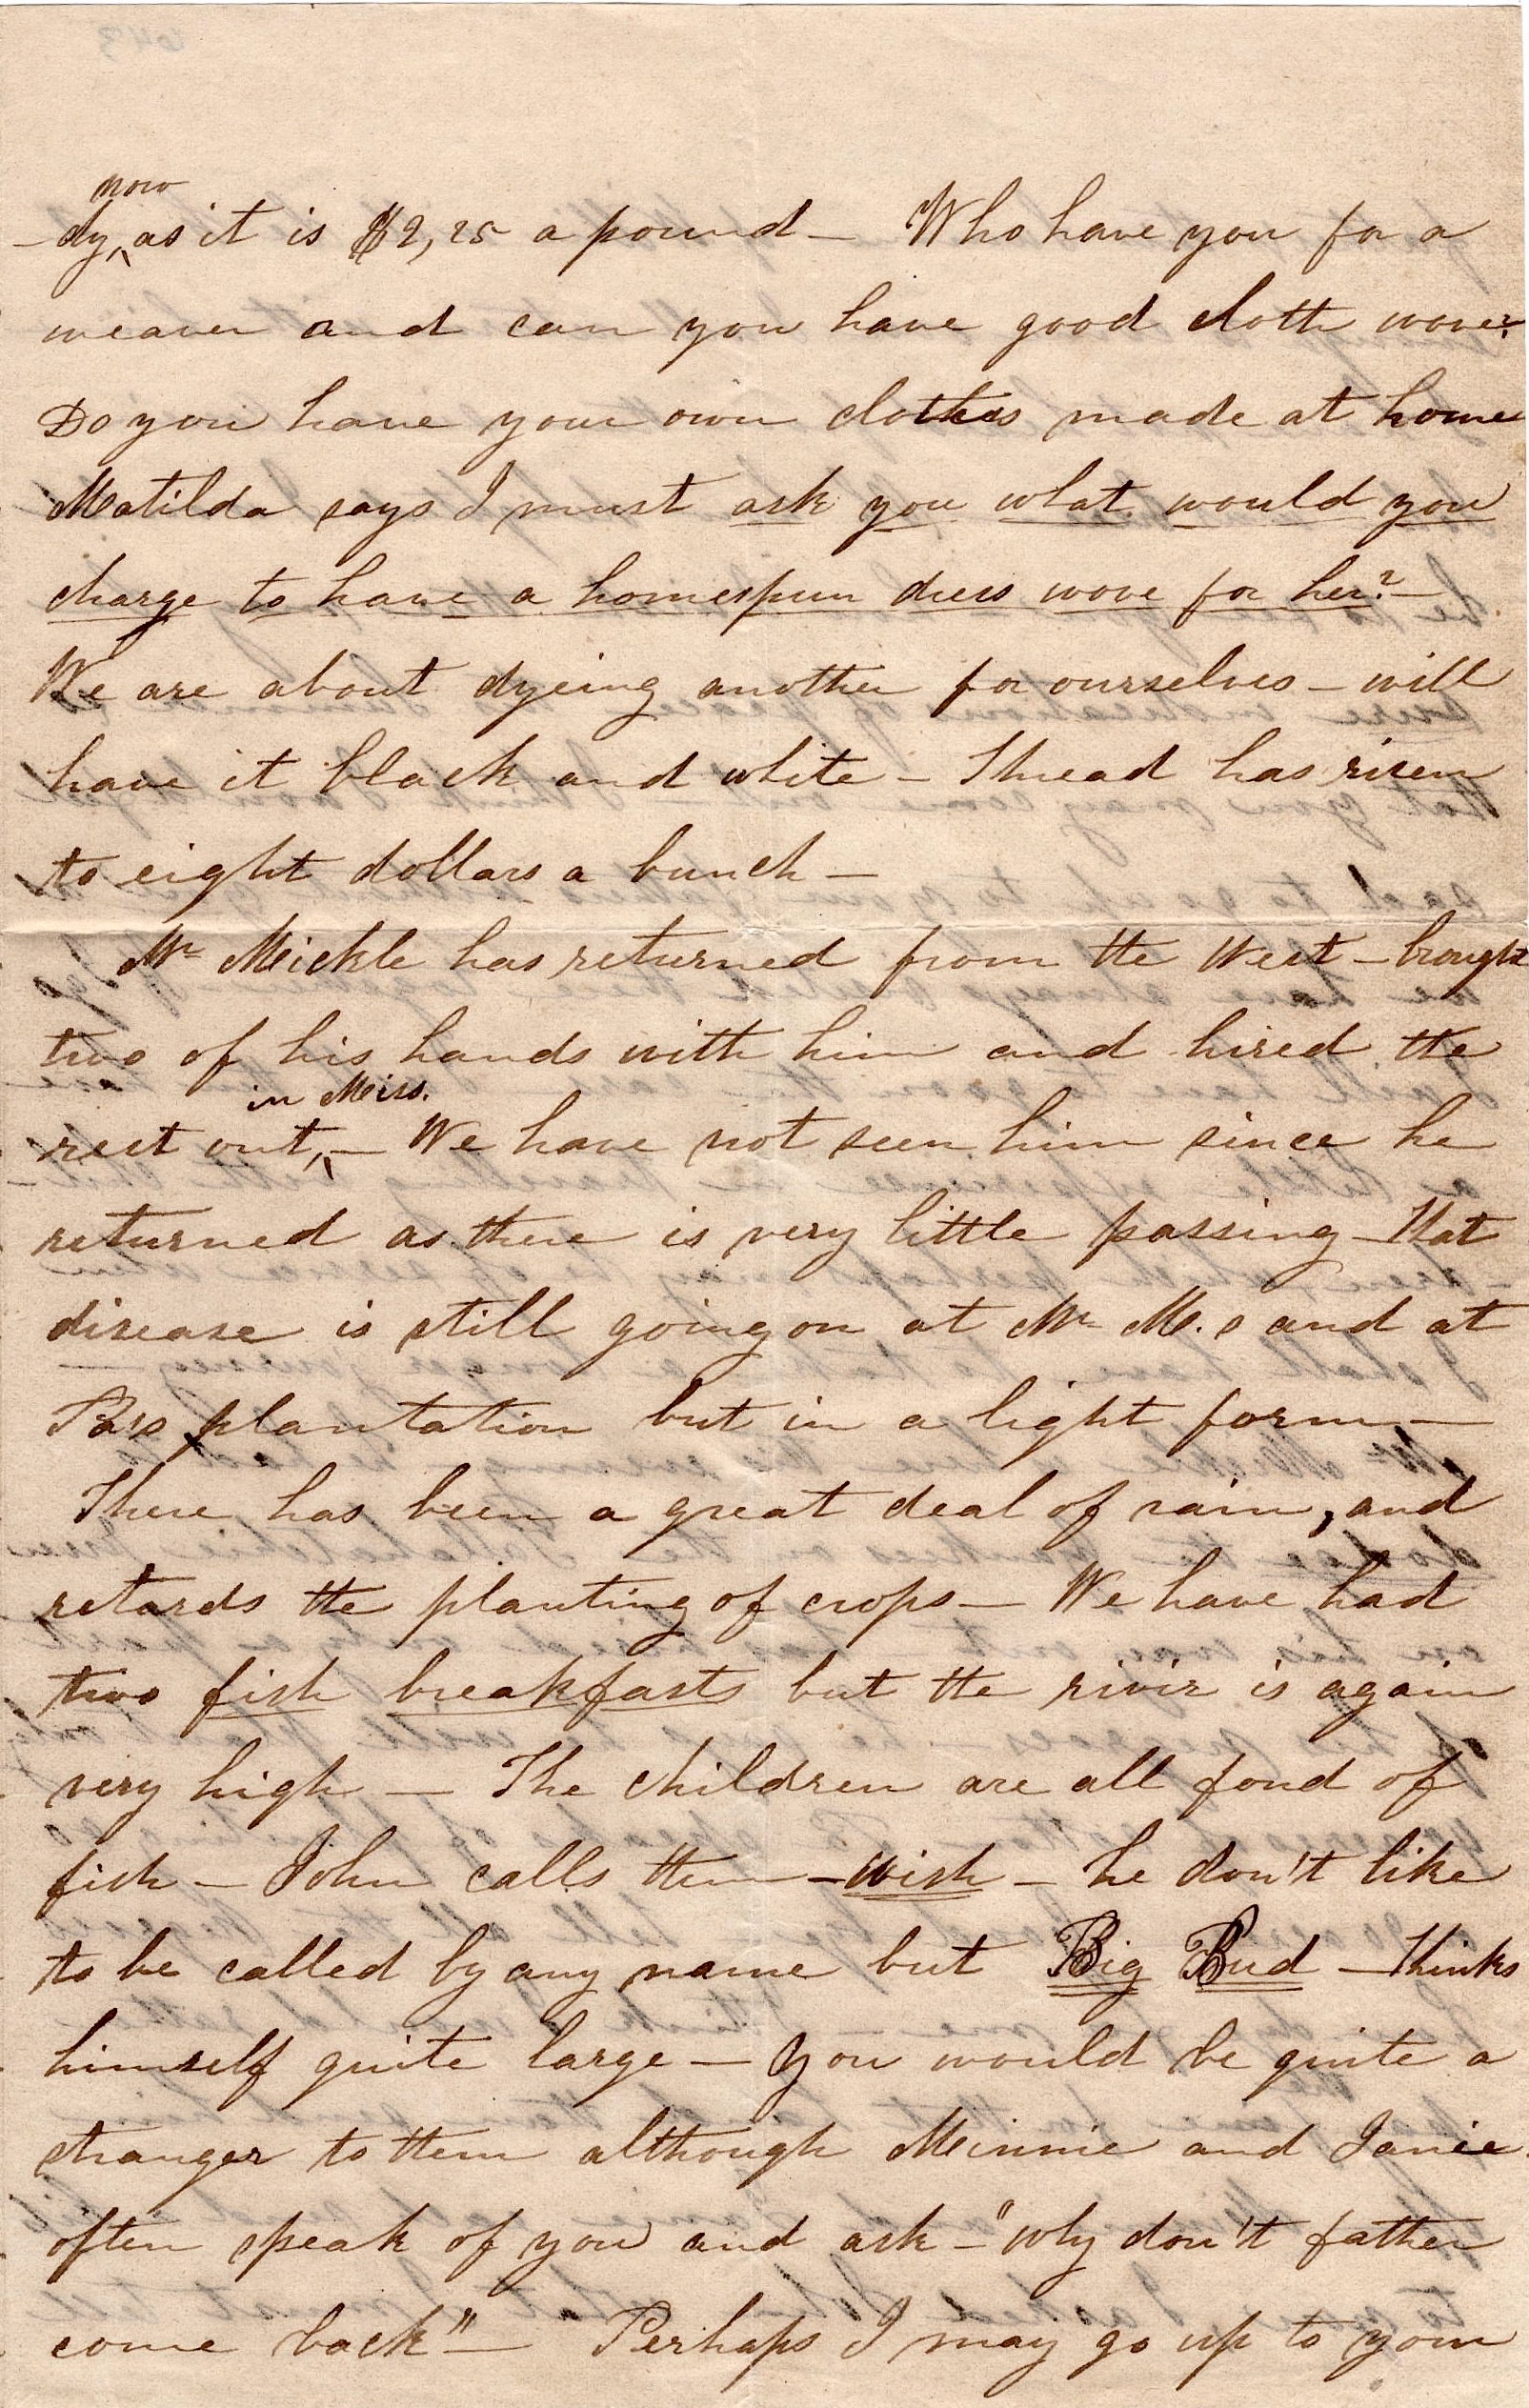 now
-dy, as it is $2,25 a pound — Who have you for a
weaver and can you have good cloth wove?
Do you have your own clothes made at home
Matilda says I must ask you what would you
charge to have a homespun dress wove for her? —
We are about dyeing another for ourselves — will
have it black and white — Thread has risen
to eight dollars a bunch —
Mr Meickle has returned from the West — brought
two of his hands with him and hired the
in Miss.
rest out, — We have not seen him since he
returned as there is very little passing — That
disease is still going on at Mr M.s and at
Pa's plantation but in a light form —
There has been a great deal of rain, and
retards the planting of crops — We have had
two fish breakfasts but the rivir is again
very high — The children are all fond of
fish — John calls them — wish — he don't like
to be called by any name but Big Bud — Thinks
himself quite large — You would be quite a
stranger to them although Minnie and Janie
often speak of you and ask — "why don't father
come back" — Perhaps I may go up to your